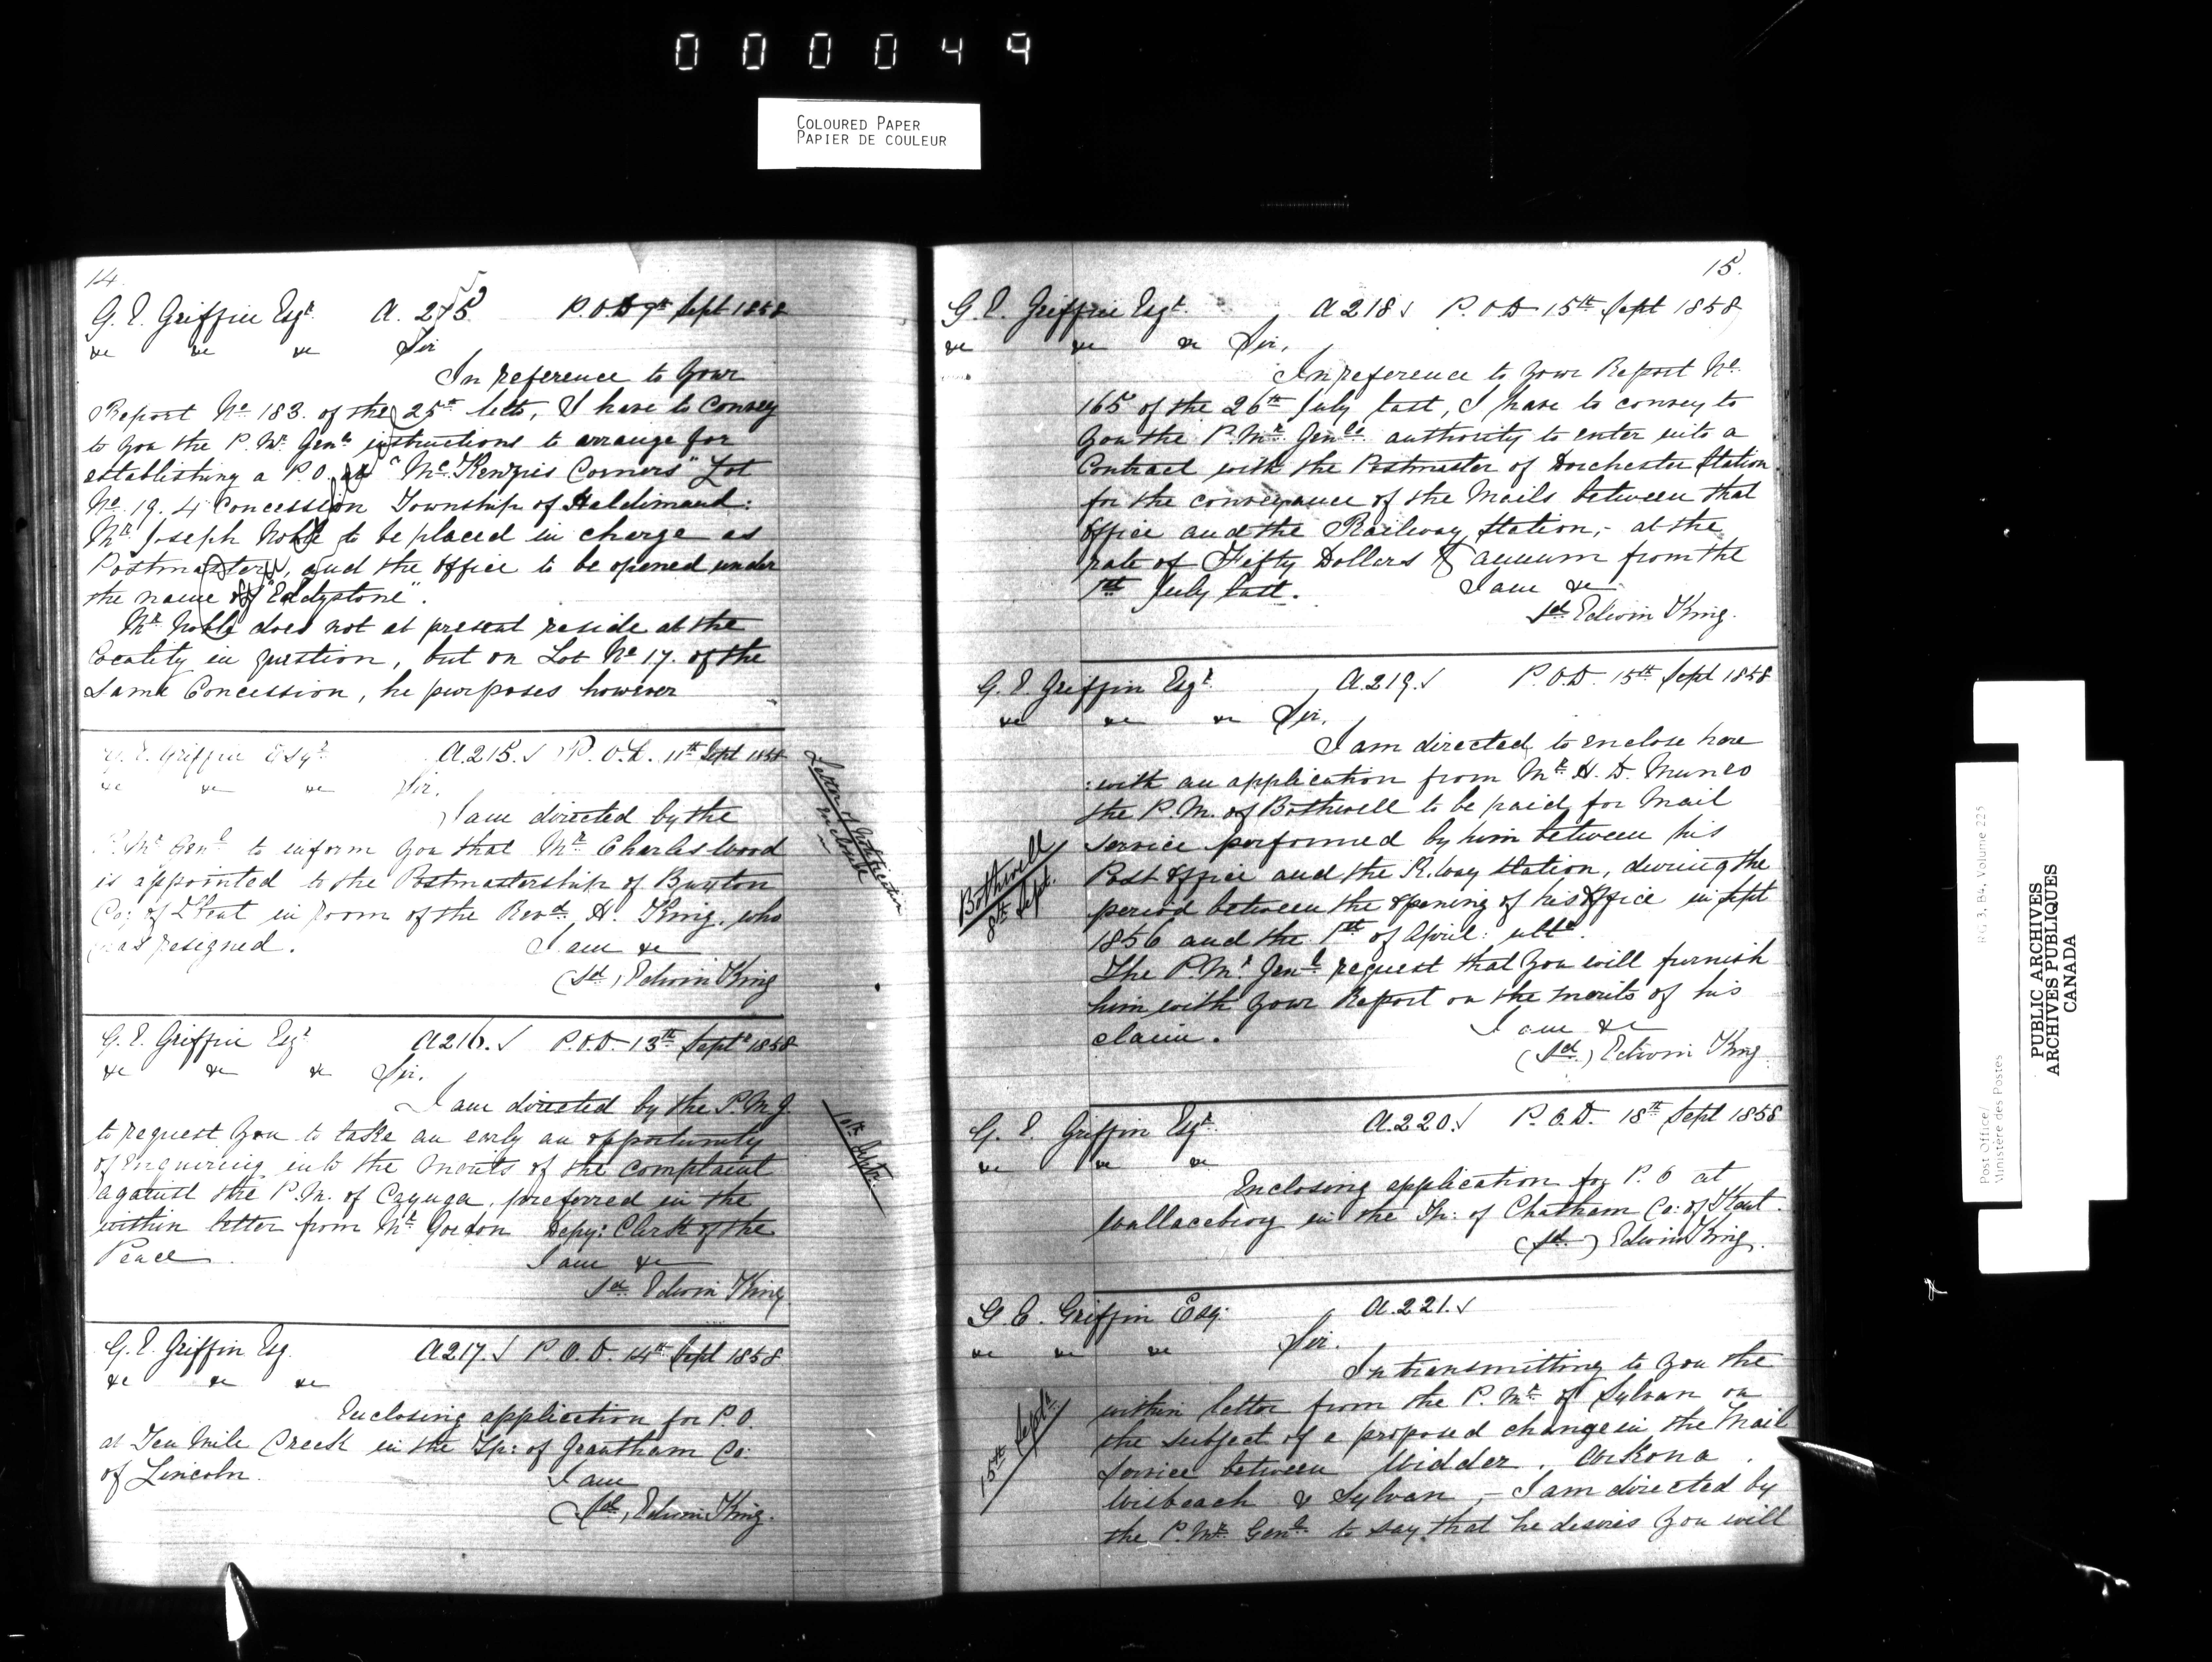 000049
COLOURED PAPER
PAPIER DE COULEUR
14.
G. E. Griffin Esqr. A. 215 P.O.D 9th Sept 1858
&c &c &c Sir
In reference to your
Report No 183. of the 25th Ulto, I have to convey
to you the P. Mr. Genls instructions to arrange for
establishing a P.O. at "McKenzies Corners" Lot
No 19. 4 Concession Township of Haldimand:
Mr Joseph Noble to be placed in charge as
Postmaster, and the office to be opened under
the name of "Eddystone".
Mr Noble does not at present reside at the
locality in question, but on Lot No 17. of the
same Concession, he purposes however
G. E. Griffin Esqr A.215. P.O.D. 11th Sept 1858
&c &c &c Sir.
I am directed by the
P. Mr Genl to inform you that Mr Charles Wood
is appointed to the Postmastership of Buxton
Co: of Kent in room of the Revd. A. King, who
has resigned.
I am &c
(sd) Edwin King
Letter of Notification
enclosed
G. E. Griffin Esqr A216. P.O.D. 13th Septr 1858
&c &c &c Sir.
I am directed by the P.M.G.
to request you to take an early an opportunity
of enquiring into the merits of the complaint
against the P.M. of Cayuga, preferred in the
within letter from Mr Gordon Depy: Clerk of the
Peace.
I am &c
sd Edwin King
10th Septr.
G. E. Griffin Esq. A217. P.O.D. 14th Sept 1858
&c &c &c
Enclosing application for P.O.
at Ten Mile Creek in the Tp: of Grantham Co:
of Lincoln.
I am
(sd) Edwin King.
15.
G. E. Griffin Esqr. A218 P.O.D 15th Sept 1858
&c &c &c Sir,
In reference to your Report No.
165 of the 26th July last, I have to convey to
you the P.Mr. Genls. authority to enter into a
Contract with the Postmaster of Dorchester Station
for the conveyance of the Mails between that
office and the Railway Station,- at the
rate of Fifty Dollars annum from the
1st July last.
I am &c
sd Edwin King.
G. E. Griffin Esqr. A.219. P.O.D. 15th Sept 1858
&c &c &c Sir.
I am directed to enclose here
:with an application from Mr. H. D. Munro
the P.M. of Bothwell to be paid for Mail
service performed by him between his
Post Office and the R.way Station, during the
period between the opening of his Office in Sept
1856 and the 1st of April: ulto.
The P.Mr. Genl. request that you will furnish
him with your Report on the merits of his
claim.
I am &c
(sd.) Edwin King
Bothwell
8th Sept.
G. E. Griffin Esqr. A.220. P.O.D. 18th Sept 1858
&c &c &c
Enclosing application for P. O at
Wallaceburg in the Tp: of Chatham Co: of Kent.
(sd.) Edwin King.
G. E. Griffin Esq. A.221.
&c &c &c Sir.
In transmitting to you the
within letter from the P. Mr. of Sylvan on
the subject of a proposed change in the Mail
Service between Widder, Arkona,
Wisbeach & Sylvan,- I am directed by
the P.Mr. Genl. to say that he desires you will
15th Septr.
Post Office/
Ministère des Postes
RG 3, B4, Volume 225
PUBLIC ARCHIVES
ARCHIVES PUBLIQUES
CANADA